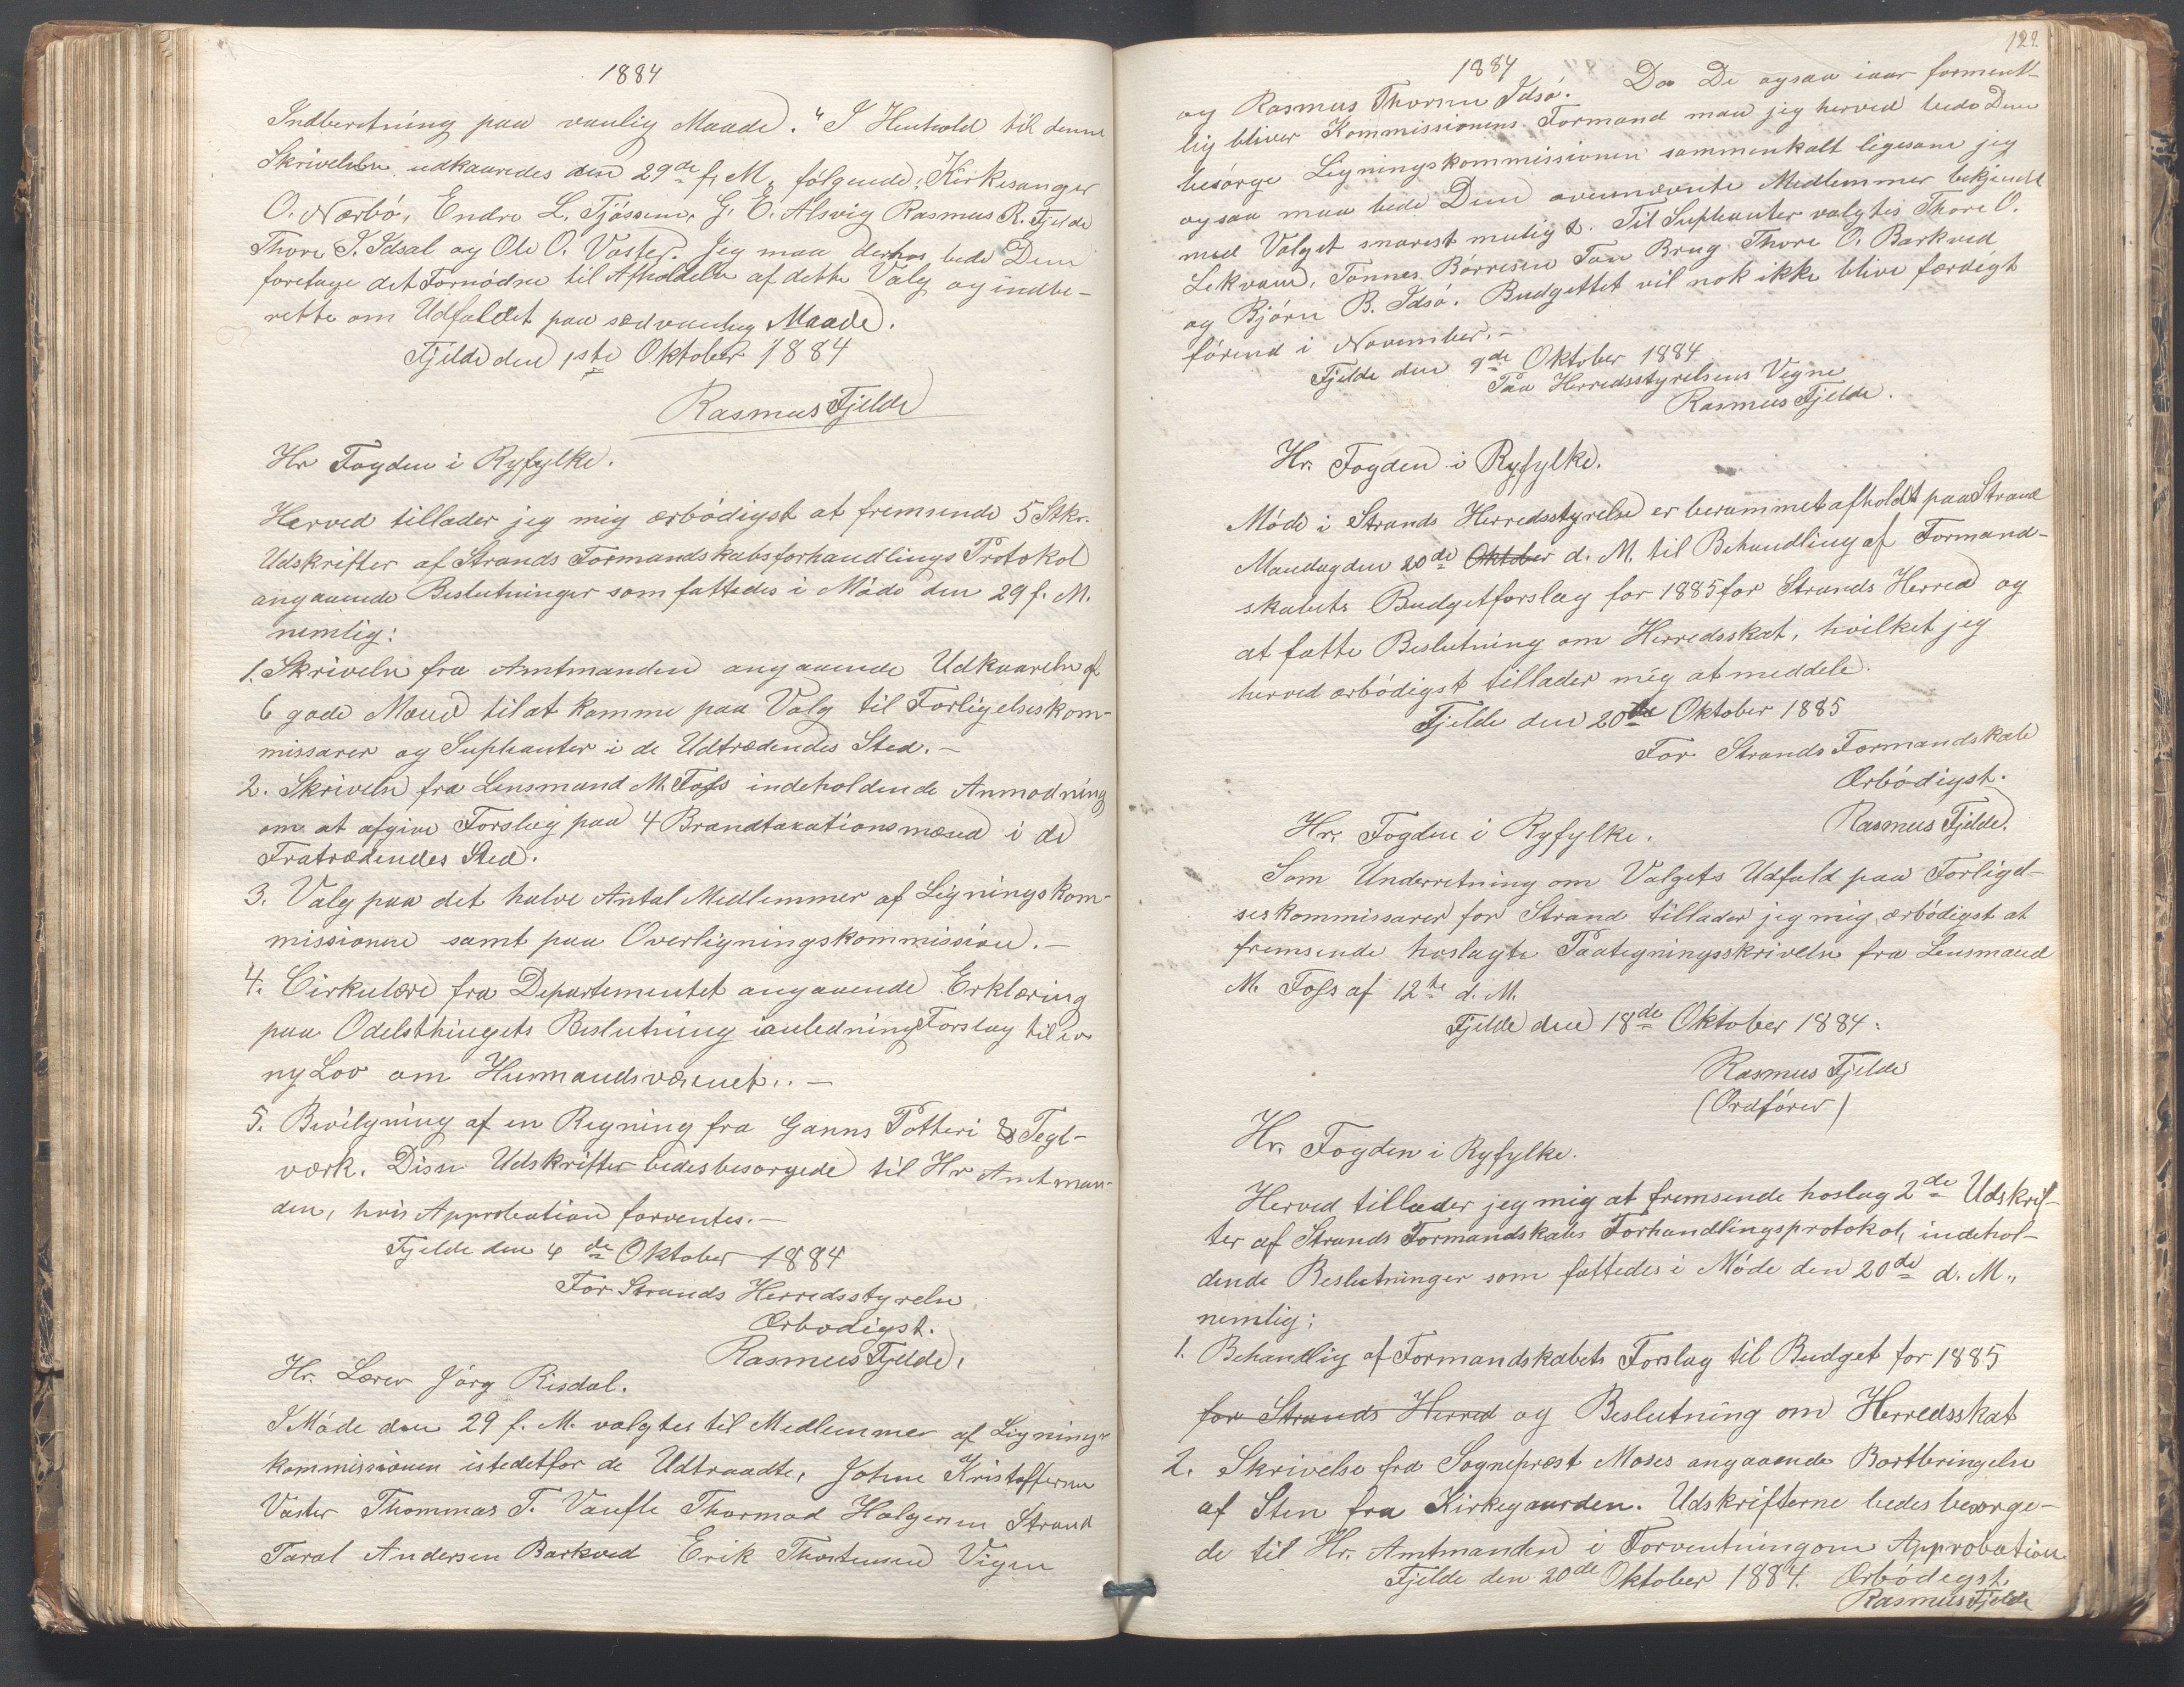 1884
Indberetning paa vanlig Maade." I Henhold til denne
Skrivelse udkaaredes den 29de f. M. følgende: Kirkesanger
O. Nærbö, Endre L. Tjössem, G. E. Alsvig Rasmus R. Fjelde
Thore T. Idsal og Ole O. Vaster. Jeg maa derhos bede Dem
foretage det Fornödne til Afholdelse af dette Valg og indbe-
rette om Udfaldet paa sedvanlig Maade.
Fjelde den 1ste Oktober 1884
Rasmus Fjelde
Hr Fogden i Ryfylke.
Herved tillader jeg mig ærbödigst at fremsende 5 Stkr.
Udskrifter af Strands Formandskabsforhandlings Protokol
angaaende Beslutninger som fattedes i Möde den 29 f. M.
nemlig:
1. Skrivelse fra Amtmanden angaaende Udkaarelse af
6 gode Mænd til at komme paa Valg til Forligelseskom-
missærer og Suplianter i de Udtrædendes Sted.-
2. Skrivelse fra Lensmand M. Foss indeholdende Anmodning
om at afgive Forslag paa 4 Brandtaxationsmænd i de
Fratrædendes Sted.
3. Valg paa det halve Antal Medlemmer af Ligningskom-
missionen samt paa Overligningskommission.-
4. Cirkulære fra Departementet angaaende Erklæring
paa Odelsthingets Beslutning i anledning Forslag til en
ny Lov om Husmandsvæsenet..-
5. Bevilgning af en Regning fra Ganns Potteri & Tegl-
værk. Disse Udskrifter bedes besørgede til Hr Amtman-
den, hvis Approbation forventes.-
Fjelde den 4de Oktober 1884
For Strands Herredsstyrelse
Ærbodigst.
Rasmus Fjelde.
Hr. Lærer Jörg Risdal.
I Möde den 29 f. M. valgtes til Medlemmer af Lignings-
kommissionen istedetfor de Udtraadte, Johne Kristoffersen
Vaster Thommas T. Vaufle Thormod Holgersen Strand
Taral Andersen Barkved Erik Thorstensen Vigen
129.
1884
og Rasmus Thorsen Idsö. Da De ogsaa iaar forment-
lig bliver Kommissionens Formand maa jeg herved bede Dem
besörge Ligningskommissionen sammenkalt ligesom jeg
ogsaa maa bede Dem ovennævnte Medlemmer bekjendt
med Valget snarest mulig t. Til Suplianter valgtes Thore O.
Lekvam, Tönnes Börresen Tau Brug Thore O. Barkved
og Björn B. Idsö. Budgettet vil nok ikke blive færdigt
förend i November.-
Fjelde den 9de Oktober 1884
Paa Herredsstyrelsens Vegne
Rasmus Fjelde.
Hr. Fogden i Ryfylke.
Möde i Strands Herredsstyrelse er berammet afholdt paa Strand
Mandag den 20de Oktober d. M. til Behandling af Formand-
skabets Budgetforslag for 1885 for Strands Herred og
at fatte Beslutning om Herredsskat, hvilket jeg
herved ærbödigst tillader mig at meddele.
Fjelde den 20de Oktober 1885
For Strands Formandskab
Ærbödigst.
Rasmus Fjelde.
Hr. Fogden i Ryfylke.
Som Underretning om Valgets Udfald paa Forligel-
seskommissærer for Strand tillader jeg mig ærbödigst at
fremsende hoslagte Paategningsskrivelse fra Lensmand
M. Foss af 12te d. M.
Fjelde den 18de Oktober 1884.
Rasmus Fjelde
(Ordförer)
Hr. Fogden i Ryfylke.
Herved tillader jeg mig at fremsende hoslag 2de Udskrif-
ter af Strands Formandskabs Forhandlingsprotokol, indehol-
dende Beslutninger som fattedes i Möde den 20de d. M.,
nemlig:
1. Behandlig af Formandskabets Forslag til Budget for 1885
for Strands Herred og Beslutning om Herredsskat
2. Skrivelse fra Sogneprest Moses angaaende Bortbringelse
af Sten fra Kirkegaarden. Udskrifterne bedes besorge-
de til Hr. Amtmanden i Forventning om Approbation
Fjelde den 20de Oktober 1884. Ærbödigst.
Rasmus Fjelde